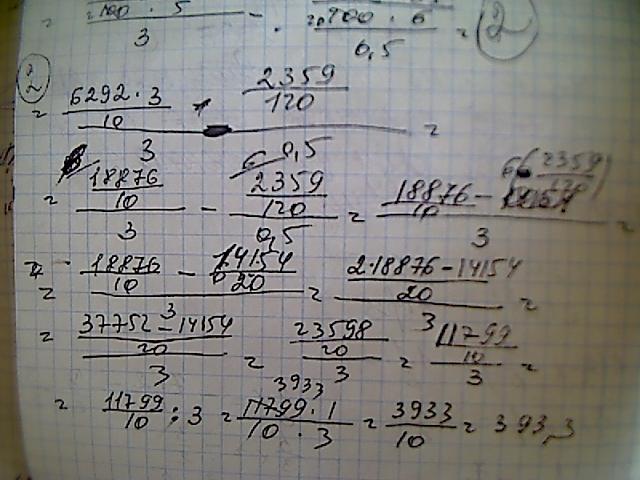 = 2100 · 5 / 3 - 2400 · 6 / 0,5 = 2
2
= (6292 · 3 / 10) / 3 - (2359 / 120) / 0,5 =
= (18876 / 10) / 3 - (2359 / 120) / 0,5 = (18876 / 10 - 6 (2359 / 120)) / 3 =
= (18876 / 10 - 14154 / 20) / 3 = ((2·18876 - 14154) / 20) / 3 =
= ((37752 - 14154) / 20) / 3 = (23598 / 20) / 3 = (11799 / 10) / 3 =
= 11799 / 10 : 3 = 3933 11799 · 1 / 10 · 3 = 3933 / 10 = 393,3